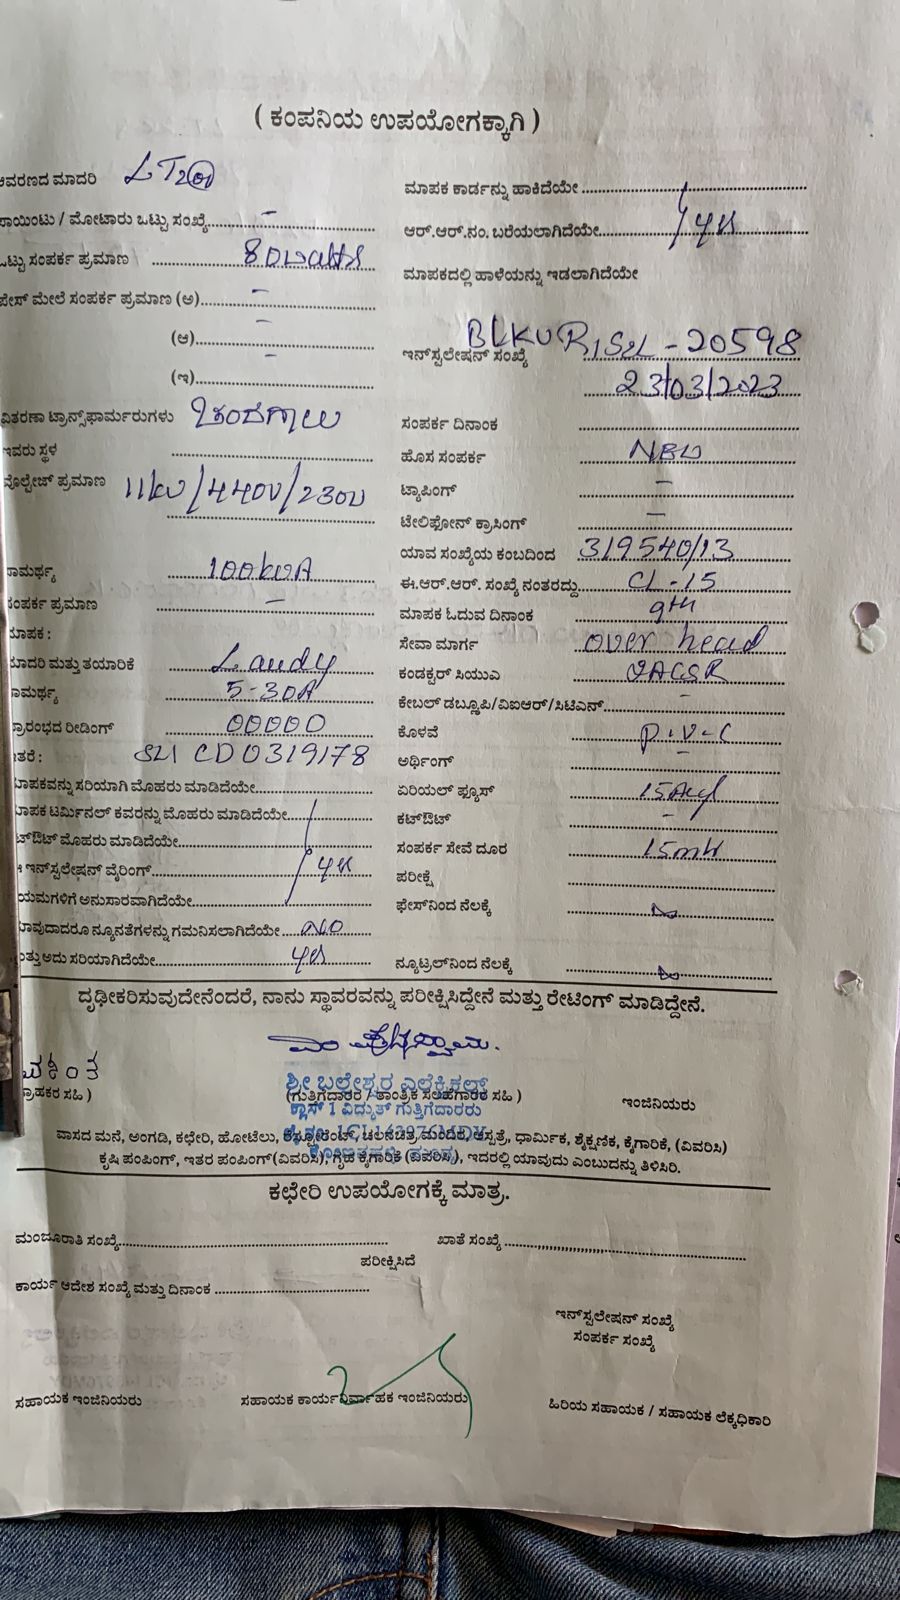 ( ಕಂಪನಿಯ ಉಪಯೋಗಕ್ಕಾಗಿ )
ಆವರಣದ ಮಾದರಿ LT2(a)
ಪಾಯಿಂಟು / ಮೋಟಾರು ಒಟ್ಟು ಸಂಖ್ಯೆ -
ಒಟ್ಟು ಸಂಪರ್ಕ ಪ್ರಮಾಣ 80watts
ಫೇಸ್ ಮೇಲೆ ಸಂಪರ್ಕ ಪ್ರಮಾಣ (ಅ) -
(ಆ) -
(ಇ) -
ವಿತರಣಾ ಟ್ರಾನ್ಸ್‌ಫಾರ್ಮರುಗಳು
ಇವರು ಸ್ಥಳ
ವೊಲ್ಟೇಜ್ ಪ್ರಮಾಣ 11kv/440v/230v
ಸಾಮರ್ಥ್ಯ 100kVA
ಸಂಪರ್ಕ ಪ್ರಮಾಣ -
ಮಾಪಕ :
ಮಾದರಿ ಮತ್ತು ತಯಾರಿಕೆ Landy
ಸಾಮರ್ಥ್ಯ 5-30A
ಪ್ರಾರಂಭದ ರೀಡಿಂಗ್ 00000
ಇತರೆ : CD0319178
ಮಾಪಕವನ್ನು ಸರಿಯಾಗಿ ಮೊಹರು ಮಾಡಿದೆಯೇ
ಮಾಪಕ ಟರ್ಮಿನಲ್ ಕವರನ್ನು ಮೊಹರು ಮಾಡಿದೆಯೇ
ಕಟ್‌ಔಟ್ ಮೊಹರು ಮಾಡಿದೆಯೇ
ಇನ್‌ಸ್ಟಲೇಷನ್ ವೈರಿಂಗ್ yes
ನಿಯಮಗಳಿಗೆ ಅನುಸಾರವಾಗಿದೆಯೇ
ಯಾವುದಾದರೂ ನ್ಯೂನತೆಗಳನ್ನು ಗಮನಿಸಲಾಗಿದೆಯೇ NO
ಮತ್ತು ಅದು ಸರಿಯಾಗಿದೆಯೇ yes
ಮಾಪಕ ಕಾರ್ಡನ್ನು ಹಾಕಿದೆಯೇ
ಆರ್.ಆರ್.ನಂ. ಬರೆಯಲಾಗಿದೆಯೇ yes
ಮಾಪಕದಲ್ಲಿ ಹಾಳೆಯನ್ನು ಇಡಲಾಗಿದೆಯೇ
ಇನ್‌ಸ್ಟಲೇಷನ್ ಸಂಖ್ಯೆ 20598
23/03/2023
ಸಂಪರ್ಕ ದಿನಾಂಕ
ಹೊಸ ಸಂಪರ್ಕ
ಟ್ಯಾಪಿಂಗ್ -
ಟೇಲಿಫೋನ್ ಕ್ರಾಸಿಂಗ್ -
ಯಾವ ಸಂಖ್ಯೆಯ ಕಂಬದಿಂದ 319540/13
ಈ.ಆರ್.ಆರ್. ಸಂಖ್ಯೆ ನಂತರದ್ದು CL-15
ಮಾಪಕ ಓದುವ ದಿನಾಂಕ 9th
ಸೇವಾ ಮಾರ್ಗ over head
ಕಂಡಕ್ಟರ್ ಸಿಯುಎ
ಕೇಬಲ್ ಡಬ್ಲೂಪಿ/ವಿಐಆರ್/ಸಿಟಿಎನ್ -
ಕೊಳವೆ P.V.C
ಅರ್ಥಿಂಗ್ -
ಏರಿಯಲ್ ಫ್ಯೂಸ್
ಕಟ್‌ಔಟ್ -
ಸಂಪರ್ಕ ಸೇವೆ ದೂರ 15mtr
ಪರೀಕ್ಷೆ
ಫೇಸ್‌ನಿಂದ ನೆಲಕ್ಕೆ
ನ್ಯೂಟ್ರಲ್‌ನಿಂದ ನೆಲಕ್ಕೆ
ದೃಢೀಕರಿಸುವುದೇನೆಂದರೆ, ನಾನು ಸ್ಥಾವರವನ್ನು ಪರೀಕ್ಷಿಸಿದ್ದೇನೆ ಮತ್ತು ರೇಟಿಂಗ್ ಮಾಡಿದ್ದೇನೆ.
ಶ್ರೀ ಬಲೇಶ್ವರ ಎಲೆಕ್ಟ್ರಿಕಲ್ಸ್
ಗ್ರಾಹಕರ ಸಹಿ ) (ಗುತ್ತಿಗೆದಾರರ / ತಾಂತ್ರಿಕ ಸಲಹೆಗಾರರ ಸಹಿ ) ಇಂಜಿನಿಯರು
ಕ್ಲಾಸ್ 1 ವಿದ್ಯುತ್ ಗುತ್ತಿಗೆದಾರರು
ವಾಸದ ಮನೆ, ಅಂಗಡಿ, ಕಛೇರಿ, ಹೋಟೆಲು, ರೆಸ್ಟೋರೆಂಟ್, ಚಲನಚಿತ್ರ ಮಂದಿರ, ಆಸ್ಪತ್ರೆ, ಧಾರ್ಮಿಕ, ಶೈಕ್ಷಣಿಕ, ಕೈಗಾರಿಕೆ, (ವಿವರಿಸಿ)
ಕೃಷಿ ಪಂಪಿಂಗ್, ಇತರ ಪಂಪಿಂಗ್(ವಿವರಿಸಿ), ಗೃಹ ಕೈಗಾರಿಕೆ (ವಿವರಿಸಿ), ಇದರಲ್ಲಿ ಯಾವುದು ಎಂಬುದನ್ನು ತಿಳಿಸಿರಿ.
ಕಛೇರಿ ಉಪಯೋಗಕ್ಕೆ ಮಾತ್ರ.
ಮಂಜೂರಾತಿ ಸಂಖ್ಯೆ ಖಾತೆ ಸಂಖ್ಯೆ
ಪರೀಕ್ಷಿಸಿದೆ
ಕಾರ್ಯ ಆದೇಶ ಸಂಖ್ಯೆ ಮತ್ತು ದಿನಾಂಕ
ಇನ್‌ಸ್ಟಲೇಷನ್ ಸಂಖ್ಯೆ
ಸಂಪರ್ಕ ಸಂಖ್ಯೆ
ಸಹಾಯಕ ಇಂಜಿನಿಯರು ಸಹಾಯಕ ಕಾರ್ಯನಿರ್ವಾಹಕ ಇಂಜಿನಿಯರು ಹಿರಿಯ ಸಹಾಯಕ / ಸಹಾಯಕ ಲೆಕ್ಕಧಿಕಾರಿ